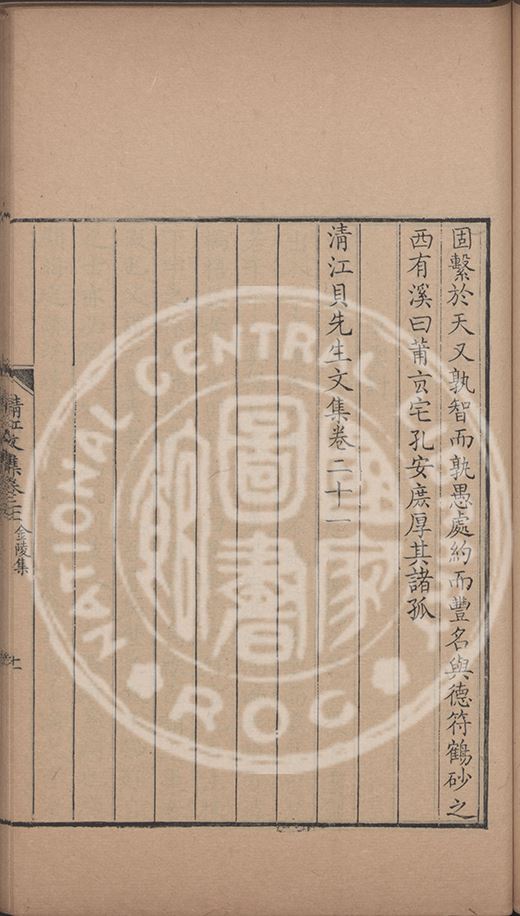 固繫於天又孰智而孰愚處約而豐名與德符鶴砂之
西有溪曰莆亢宅孔安庶厚其諸孤
清江貝先生文集卷二十一
清江文集卷二十一
金陵集
十一
NATIONAL CENTRAL
R.O.C
國家圖書